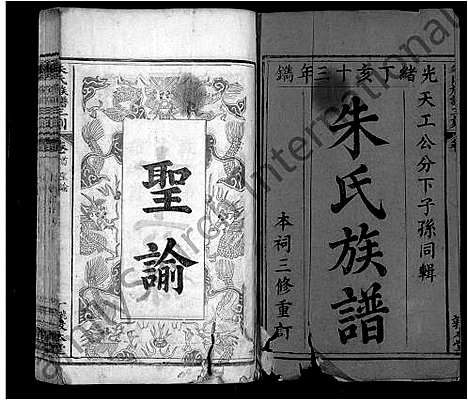 光緒丁亥十三年鐫
天工公分下子孫同輯
朱氏族譜
本祠三修重訂
聖諭
FamilySearch International